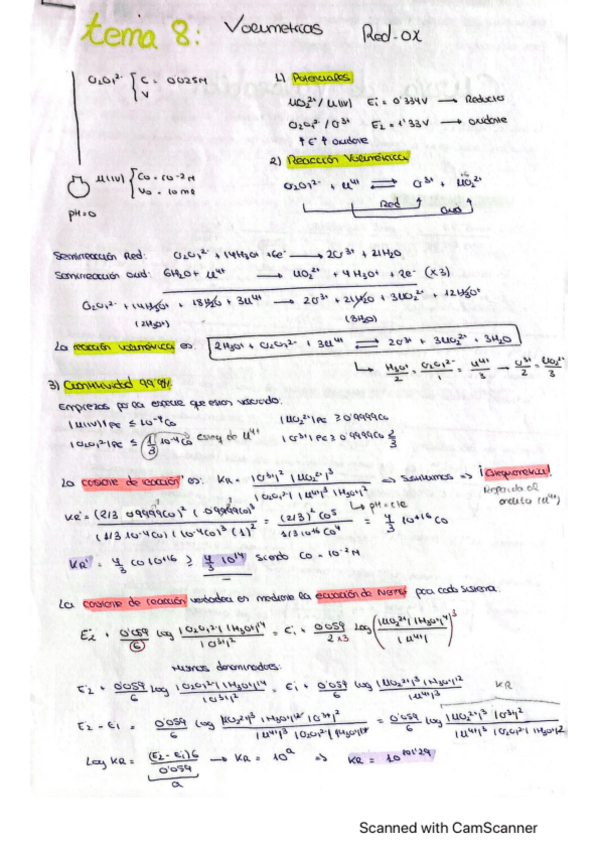 tema 8: Volumetrias Red-ox
Cr2O7²⁻ { C = 0'025M
V
1) Potenciales
UO2²⁺/U(IV) E1 = 0'334V → Reductor
Cr2O7²⁻/Cr³⁺ E2 = 1'33V → oxidante
↑E ↑oxidante
2) Reacción Volumétrica
U(IV) { Co = 10⁻² M
Vo = 10 mL
pH=0
Cr2O7²⁻ + U⁴⁺ ⇌ Cr³⁺ + UO2²⁺
Red
Oxid
Semirreacción Red: Cr2O7²⁻ + 14H3O⁺ + 6e⁻ → 2Cr³⁺ + 21H2O
Semirreacción Oxid: 6H2O + U⁴⁺ → UO2²⁺ + 4H3O⁺ + 2e⁻ (x3)
Cr2O7²⁻ + 14H3O⁺ + 18H2O + 3U⁴⁺ → 2Cr³⁺ + 21H2O + 3UO2²⁺ + 12H3O⁺
(2H3O⁺) (3H2O)
La reacción volumétrica es: 2H3O⁺ + Cr2O7²⁻ + 3U⁴⁺ ⇌ 2Cr³⁺ + 3UO2²⁺ + 3H2O
↳ H3O⁺/2 = Cr2O7²⁻/1 = U⁴⁺/3 → Cr³⁺/2 = UO2²⁺/3
3) Cuantitividad 99'99%
|U(IV)|PE ≤ 10⁻⁴Co |UO2²⁺|PE ≥ 0'9999Co
|Cr2O7²⁻|PE ≤ 1/3 10⁻⁴Co de U⁴⁺ |Cr³⁺|PE ≥ 0'9999Co 2/3
La constante de reacción es: KR = |Cr³⁺|² |UO2²⁺|³ / |Cr2O7²⁻| |U⁴⁺|³ |H3O⁺|² ⇒ Sustituimos ⇒ ¡Estequiometria!
↳ pH = cte
KR' = (2/3 0'9999Co)² (0'9999Co)³ / (1/3 10⁻⁴Co) (10⁻⁴Co)³ (1)² = (2/3)² Co⁵ / 1/3 10⁻¹⁶ Co⁴ = 4/3 10⁺¹⁶ Co
KR' = 4/3 Co 10⁺¹⁶ ≥ 4/3 10¹⁴ Siendo Co = 10⁻² M
La constante de reacción mediante la ecuación de Nernst para cada sistema:
E2 + 0'059/6 log |Cr2O7²⁻| |H3O⁺|¹⁴ / |Cr³⁺|² = E1 + 0'059/2x3 log (|UO2²⁺| |H3O⁺|⁴ / |U⁴⁺|)³
Mismos denominadores:
E2 + 0'059/6 log |Cr2O7²⁻| |H3O⁺|¹⁴ / |Cr³⁺|² = E1 + 0'059/6 log |UO2²⁺|³ |H3O⁺|¹² / |U⁴⁺|³
KR
E2 - E1 = 0'059/6 log |UO2²⁺|³ |H3O⁺|¹² |Cr³⁺|² / |U⁴⁺|³ |Cr2O7²⁻| |H3O⁺|¹⁴ = 0'059/6 log |UO2²⁺|³ |Cr³⁺|² / |U⁴⁺|³ |Cr2O7²⁻| |H3O⁺|²
Log KR = (E2 - E1)6 / 0'059 → KR = 10ᵃ ⇒ KR = 10¹⁰¹'²⁹
a
Scanned with CamScanner